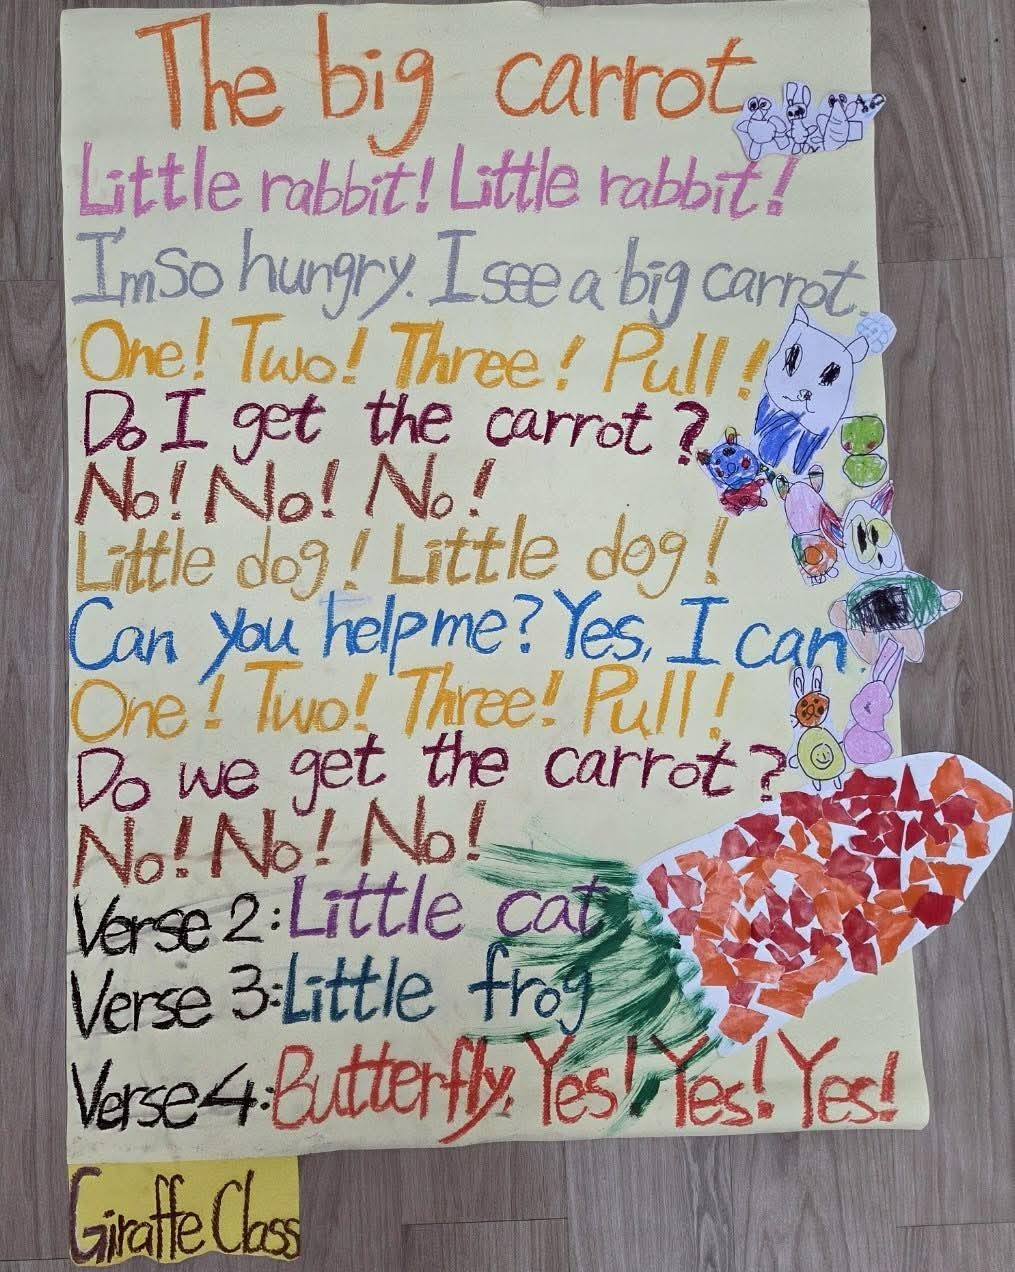 The big carrot
Little rabbit! Little rabbit!
I'm So hungry. I see a big carrot.
One! Two! Three! Pull!
Do I get the carrot?
No! No! No!
Little dog! Little dog!
Can you help me? Yes, I can.
One! Two! Three! Pull!
Do we get the carrot?
No! No! No!
Verse 2: Little cat
Verse 3: Little frog
Verse 4: Butterfly. Yes! Yes! Yes!
Giraffe Class